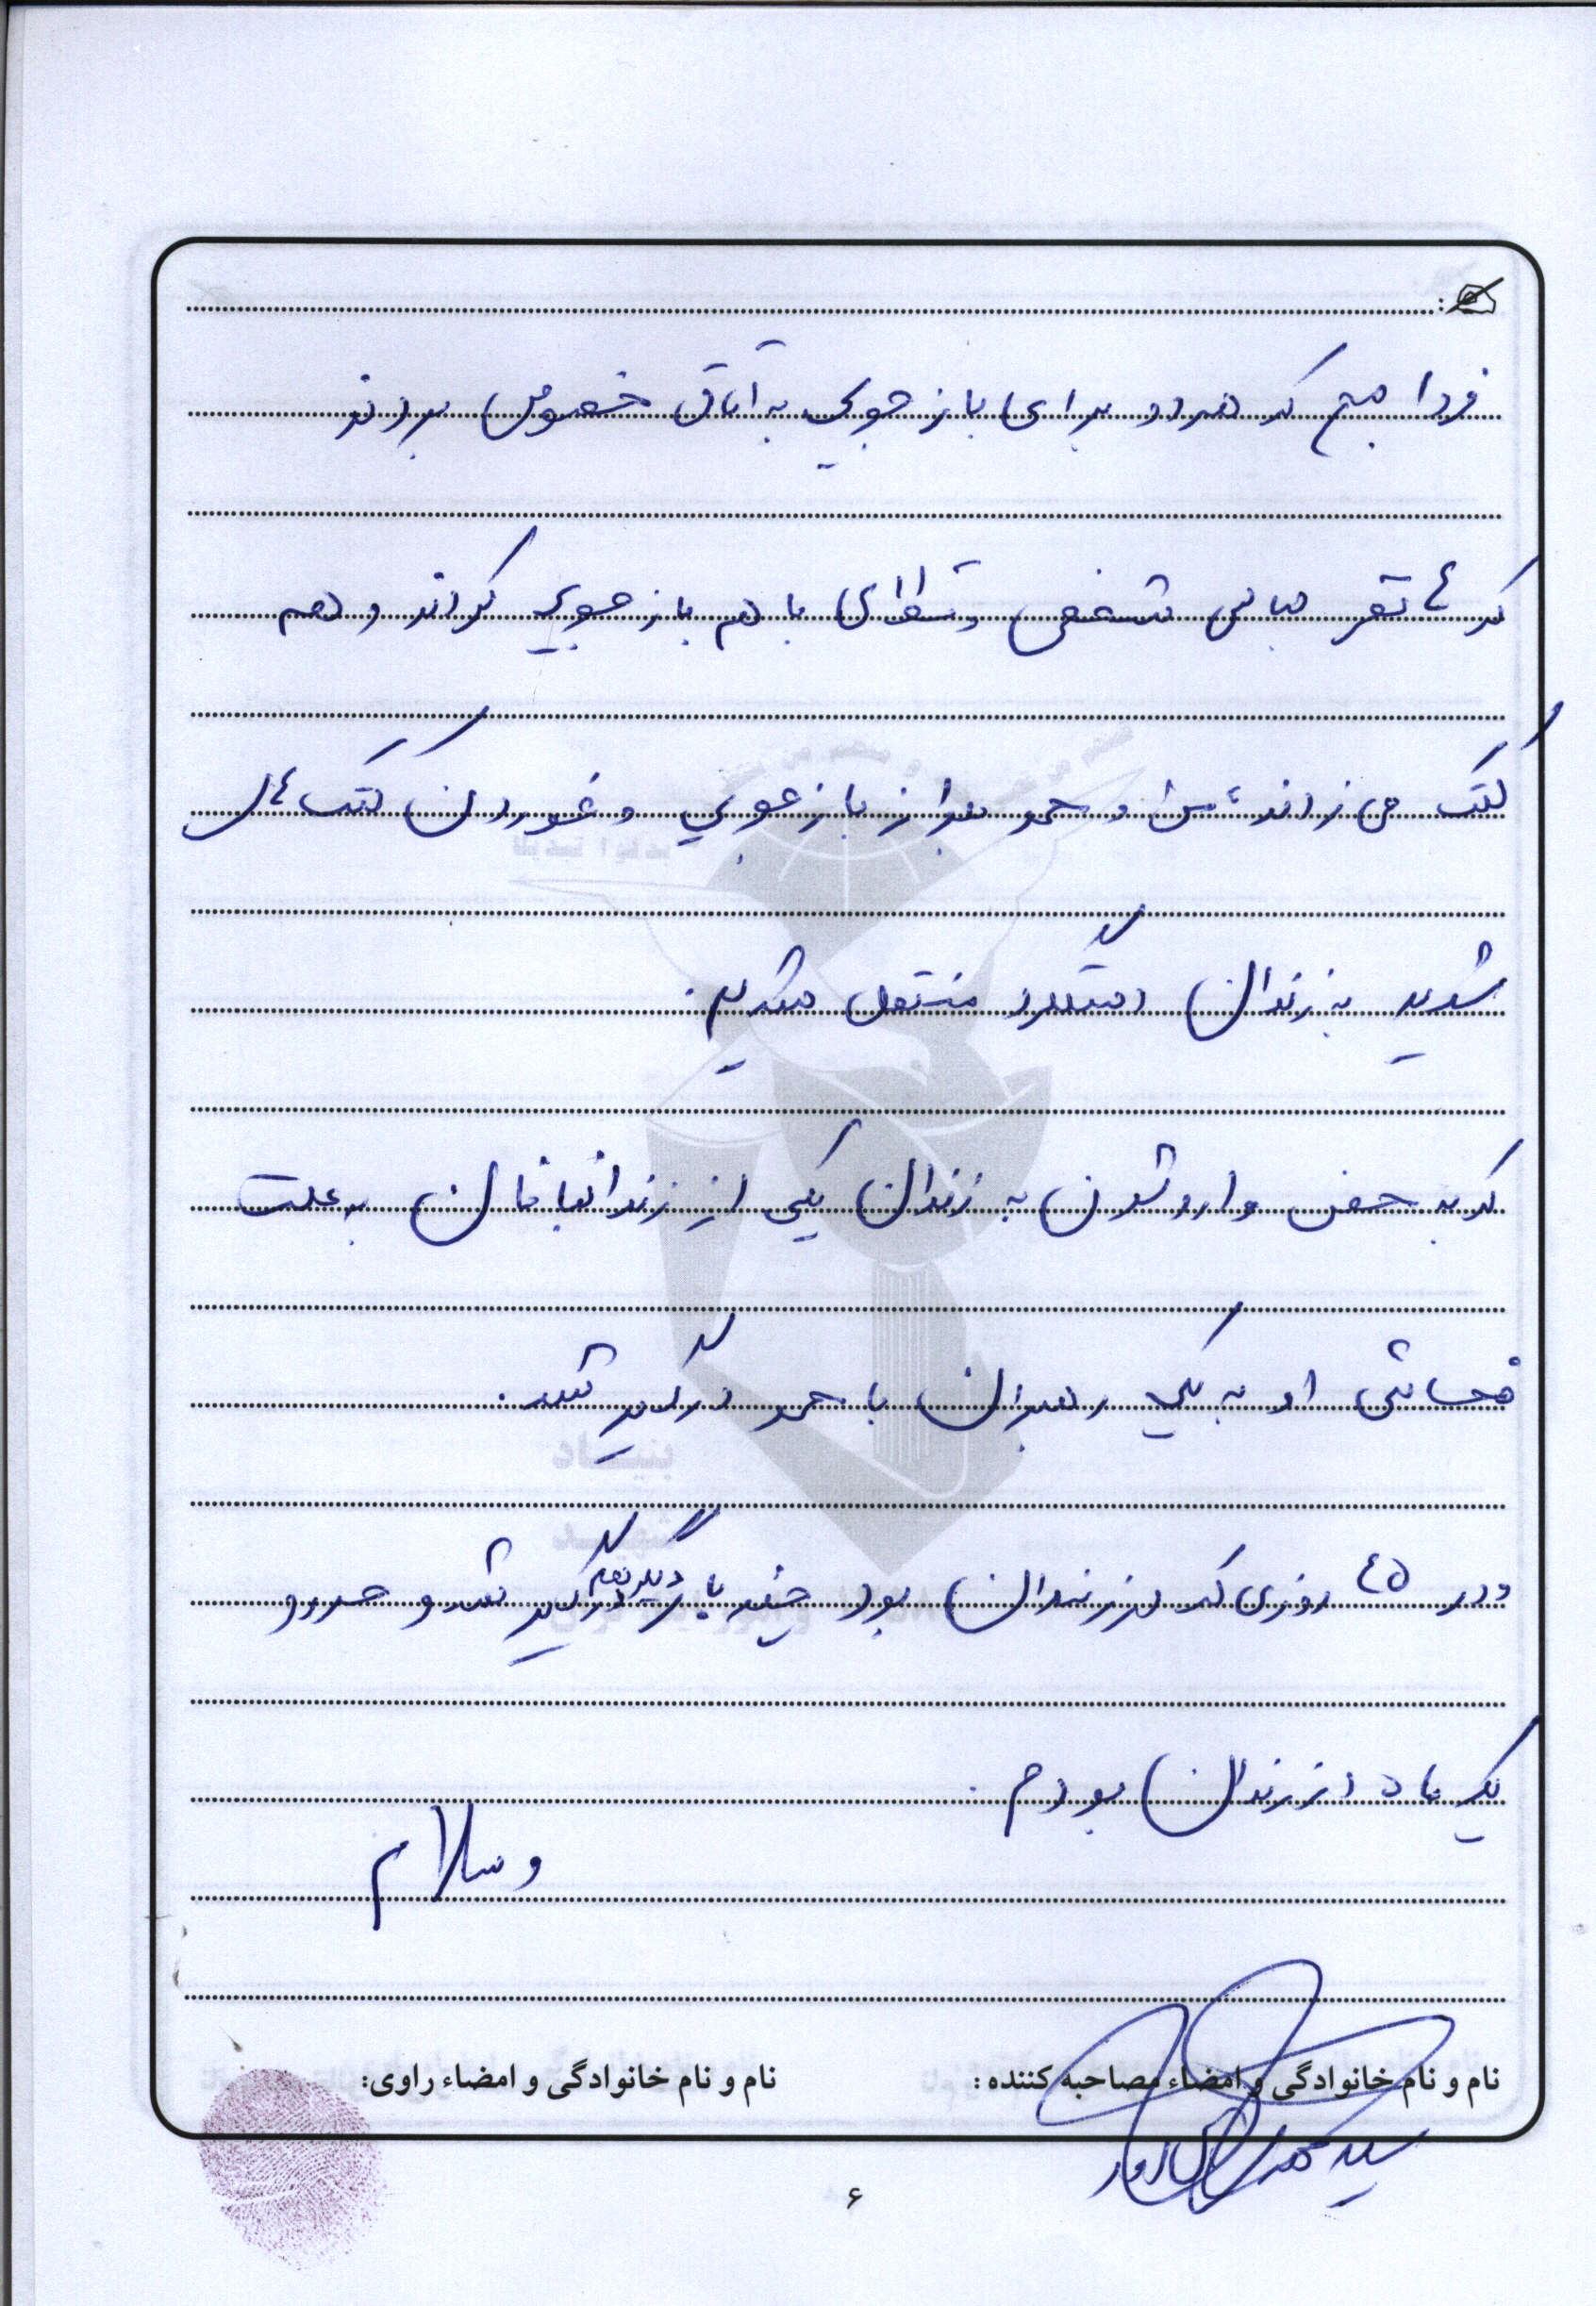 فردا صبح که هردو برای بازجویی به اتاق خصوص بردند
که ٤ نفر لباس شخصی با هم بازجویی کردند و هم
کتک می زدند، من و حمد بعد از بازجویی و خوردن کتک
شدید به زندان دستگرد منتقل شدیم.
که به حض وارد شدن به زندان یکی از زندانبانان به علت
فحاشی او به یکی رهبران با حمد درگیر شد.
ودر ٤٥ روزی که در زندان بود چند بار دیگر هم درگیر شد و
یک ماه در زندان بودم.
وسلام
نام و نام خانوادگی و امضاء مصاحبه کننده :
نام و نام خانوادگی و امضاء راوی:
۶